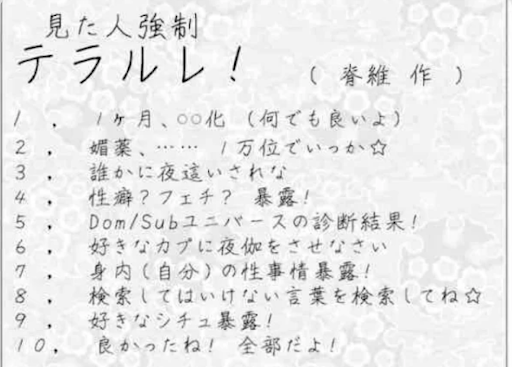 見た人強制
テラルレ!
( 脊維 作 )
1 , 1ヶ月、○○化 (何でも良いよ)
2 , 媚薬、…… 1万位でいっか☆
3 , 誰かに夜這いされな
4 , 性癖?フェチ? 暴露!
5 , Dom/Subユニバースの診断結果!
6 , 好きなカプに夜伽をさせなさい
7 , 身内(自分)の性事情暴露!
8 , 検索してはいけない言葉を検索してね☆
9 , 好きなシチュ暴露!
10, 良かったね! 全部だよ!